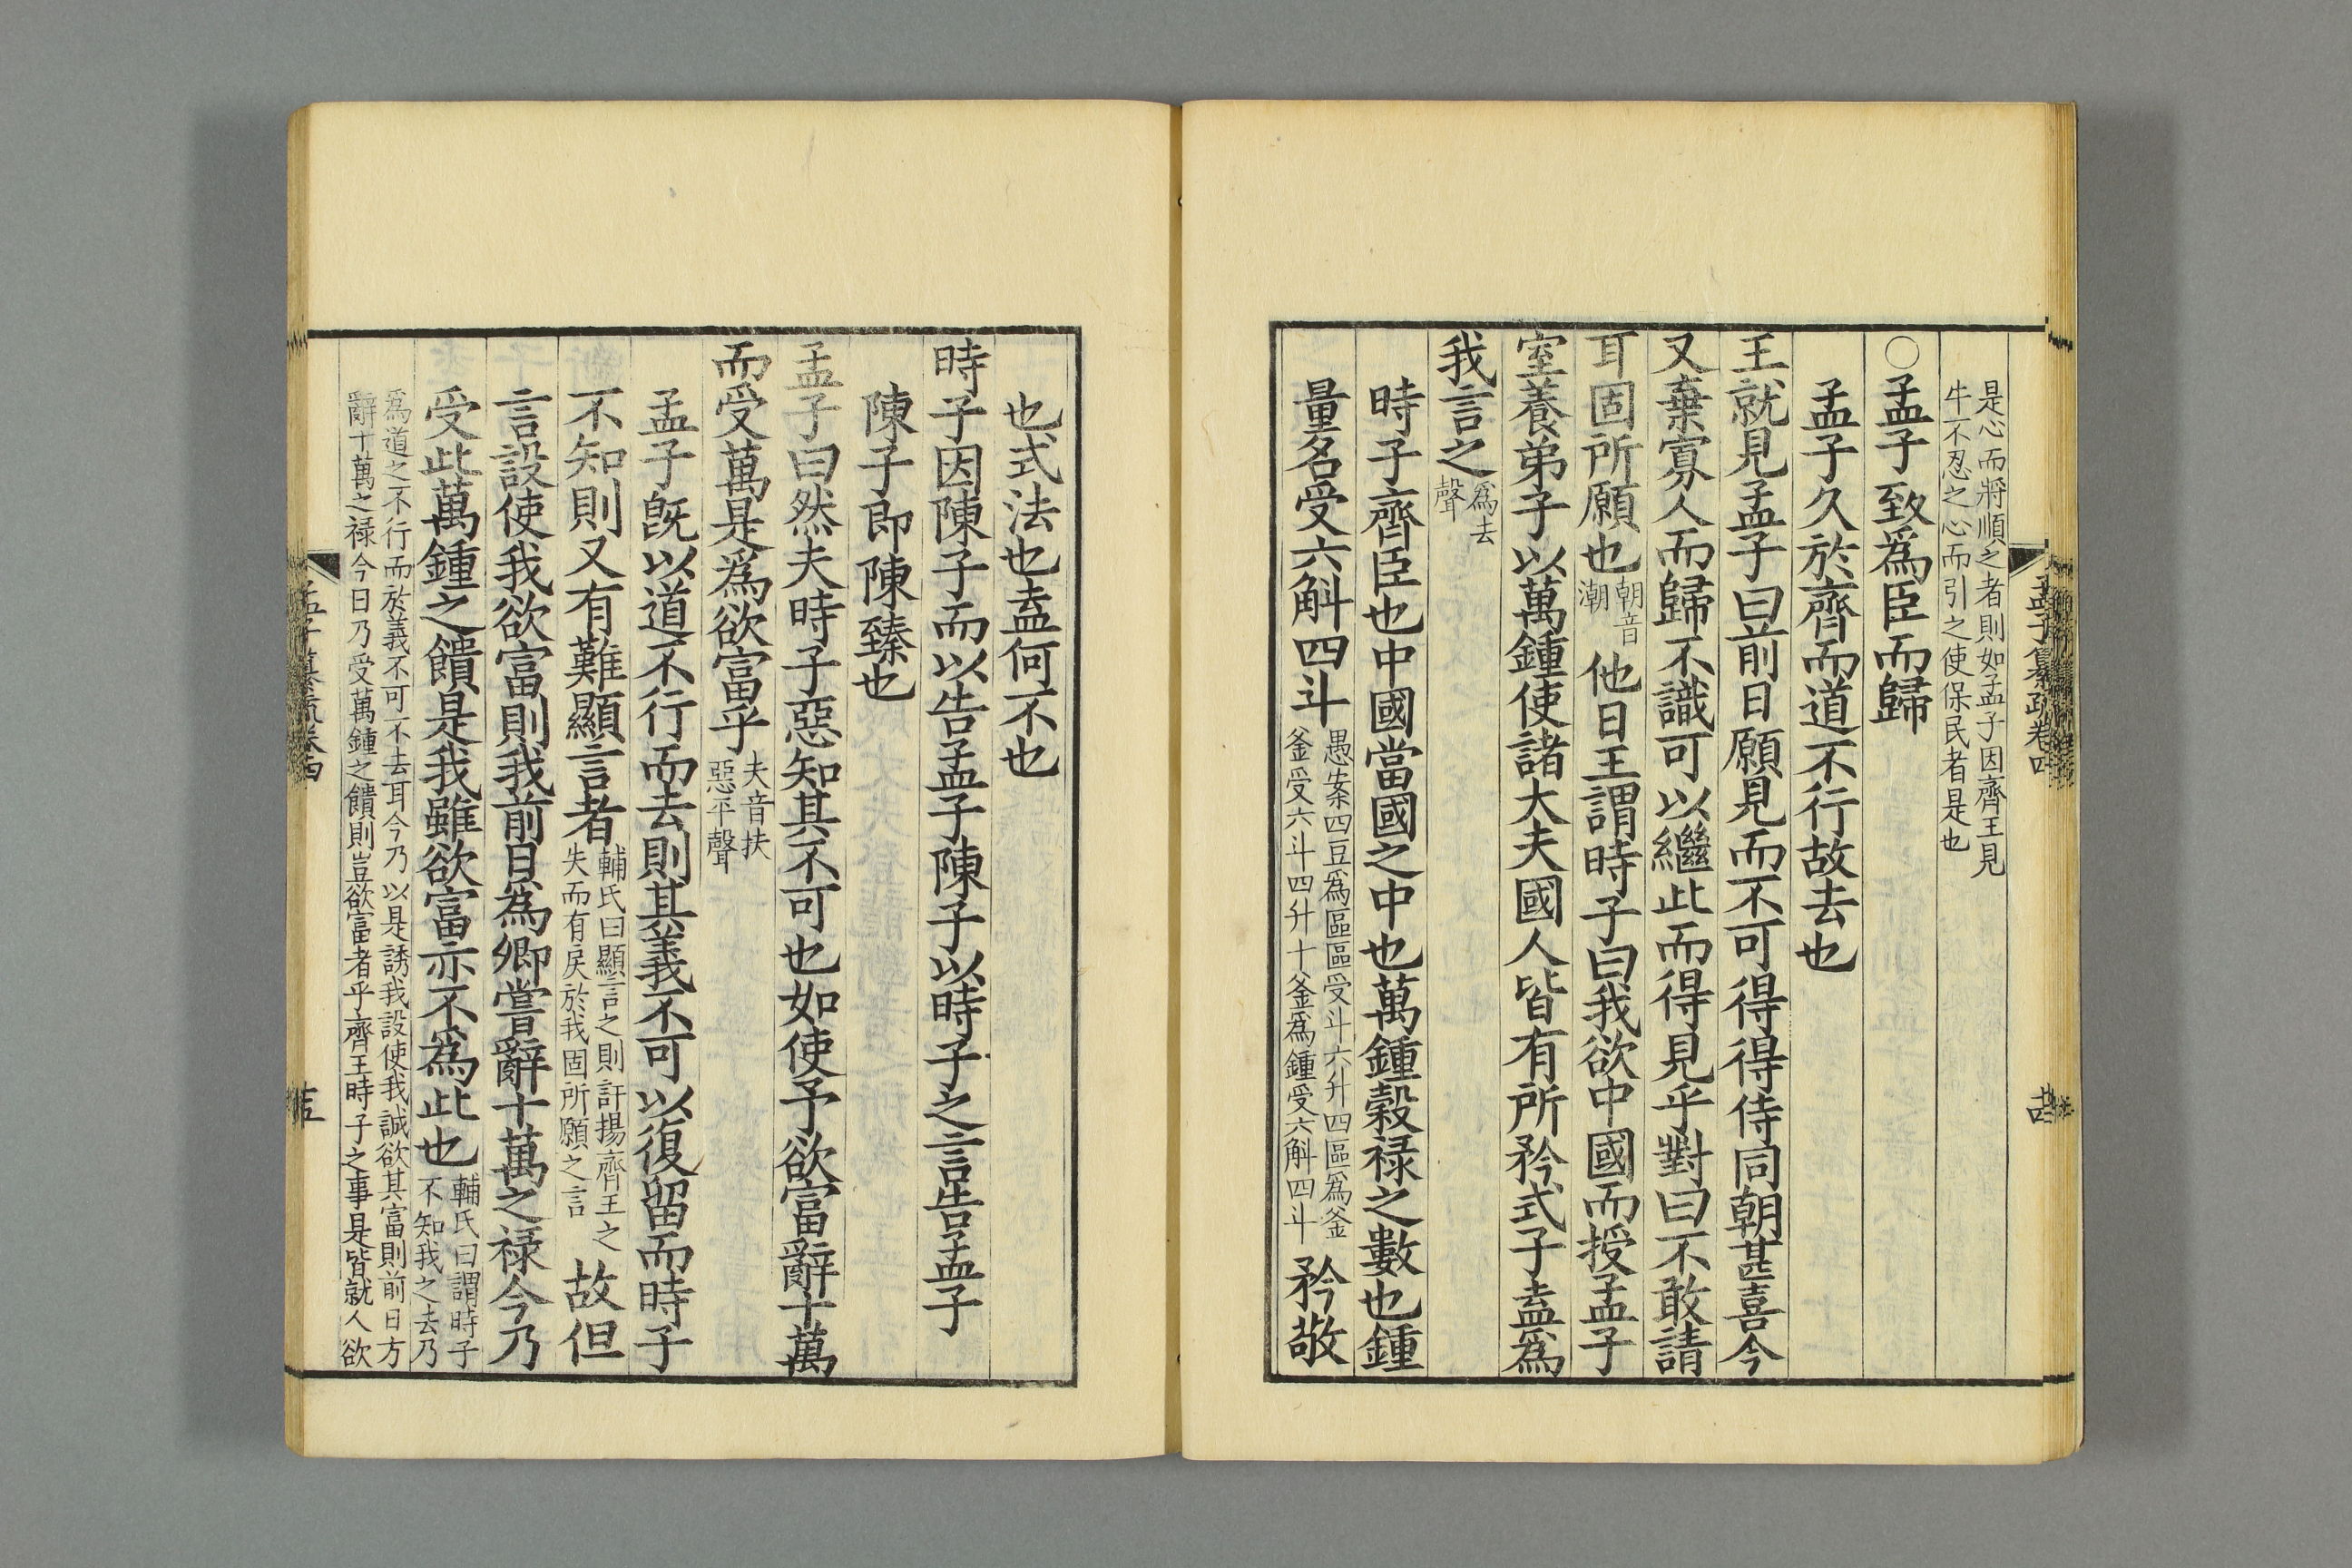 孟子纂疏卷四
廿四
是心而將順之者則如孟子因齊王見
牛不忍之心而引之使保民者是也
○孟子致爲臣而歸
孟子久於齊而道不行故去也
王就見孟子曰前日願見而不可得得侍同朝甚喜今
又棄寡人而歸不識可以繼此而得見乎對曰不敢請
耳固所願也
朝音
潮
他日王謂時子曰我欲中國而授孟子
室養弟子以萬鍾使諸大夫國人皆有所矜式子盍爲
我言之
爲去
聲
時子齊臣也中國當國之中也萬鍾穀祿之數也鍾
量名受六斛四斗
愚案四豆爲區區受斗六升四區爲釜
釜受六斗四升十釜爲鍾受六斛四斗
矜敬
也式法也盍何不也
時子因陳子而以告孟子陳子以時子之言告孟子
陳子即陳臻也
孟子曰然夫時子惡知其不可也如使予欲富辭十萬
而受萬是爲欲富乎
夫音扶
惡平聲
孟子旣以道不行而去則其義不可以復留而時子
不知則又有難顯言者
輔氏曰顯言之則訐揚齊王之
失而有戾於我固所願之言
故但
言設使我欲富則我前日爲卿嘗辭十萬之祿今乃
受此萬鍾之饋是我雖欲富亦不爲此也
輔氏曰謂時子
不知我之去乃
爲道之不行而於義不可不去耳今乃以是誘我設使我誠欲其富則前日方
辭十萬之祿今日乃受萬鍾之饋則豈欲富者乎齊王時子之事是皆就人欲
孟子纂疏卷四